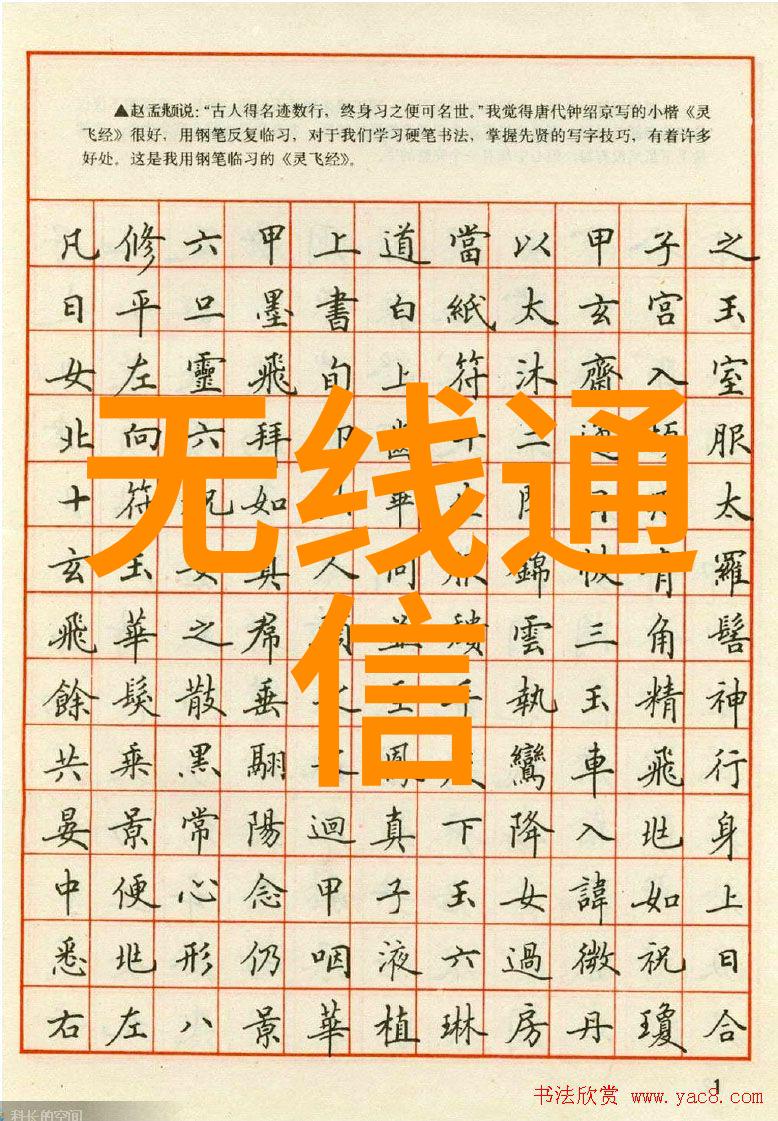 ▲赵孟頫说:“古人得名迹数行,终身习之便可名世。”我觉得唐代钟绍京写的小楷《灵
飞经》很好,用钢笔反复临习,对于我们学习硬笔书法,掌握先贤的写字技巧,有着许多
好处。这是我用钢笔临习的《灵飞经》。
凡修六甲上道當以甲子之
日平旦墨書白紙太玄宮玉
女左靈飛旬上符沐齋入室
北向六拜齒十二服
十符祝如畢太
玄玉女真人同服錦帔青羅
飛華之帬並頹雲三角髻
餘髮散垂之手執玉精神
共乘黑翮鳳鸞車飛行
晏景常陽迴真下降入兆身
中便心念甲子玉女諱如上
悉兆形仍咽液六過微祝曰
右左八景華植琳房丹瓊合
无线通
信
1
书法欣赏 www.yac8.com
科长的空间